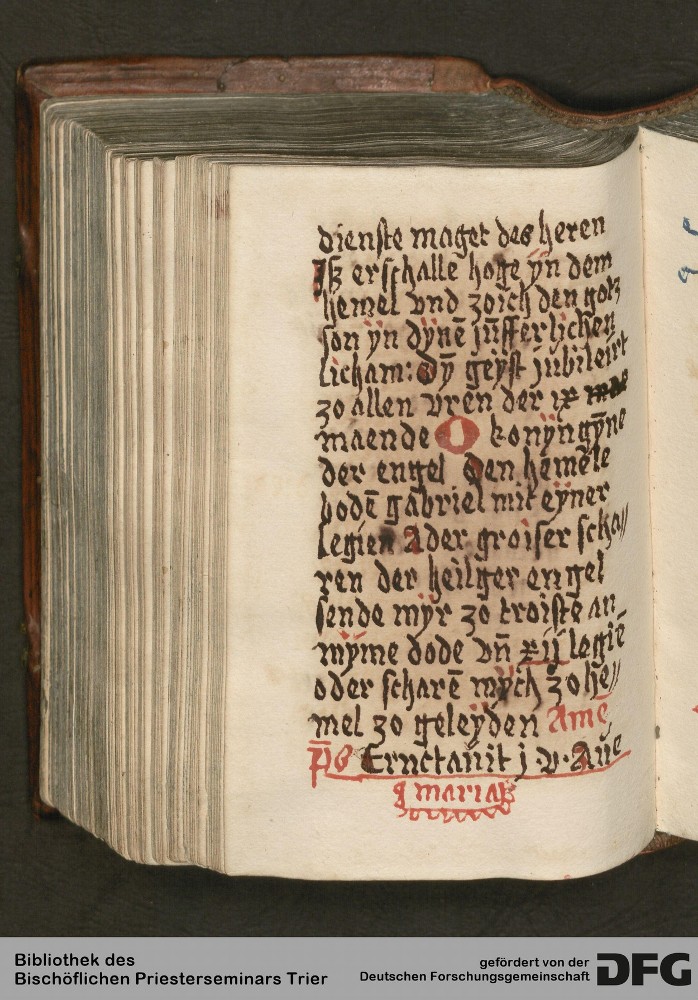 dienste maget des heren
Jß erschalle hoge ÿn dem
hemel vnd zoich den gotz
son ÿn dÿnē jūfferlichen
licham: dÿ geÿst jubileirt
zo allen vren der ix
maende O konÿngÿne
der engel den hemels
bodē gabriel mit eÿner
legien Ader groiser scha//
ren der heilger engel
sende mÿr zo troiste an
mÿme dode vn̄ xij legiē
oder scharē mÿch zo he//
mel zo geleÿden Amē
Ps Eructauit j. v. Aue
maria
Bibliothek des
Bischöflichen Priesterseminars Trier
gefördert von der
Deutschen Forschungsgemeinschaft
DFG